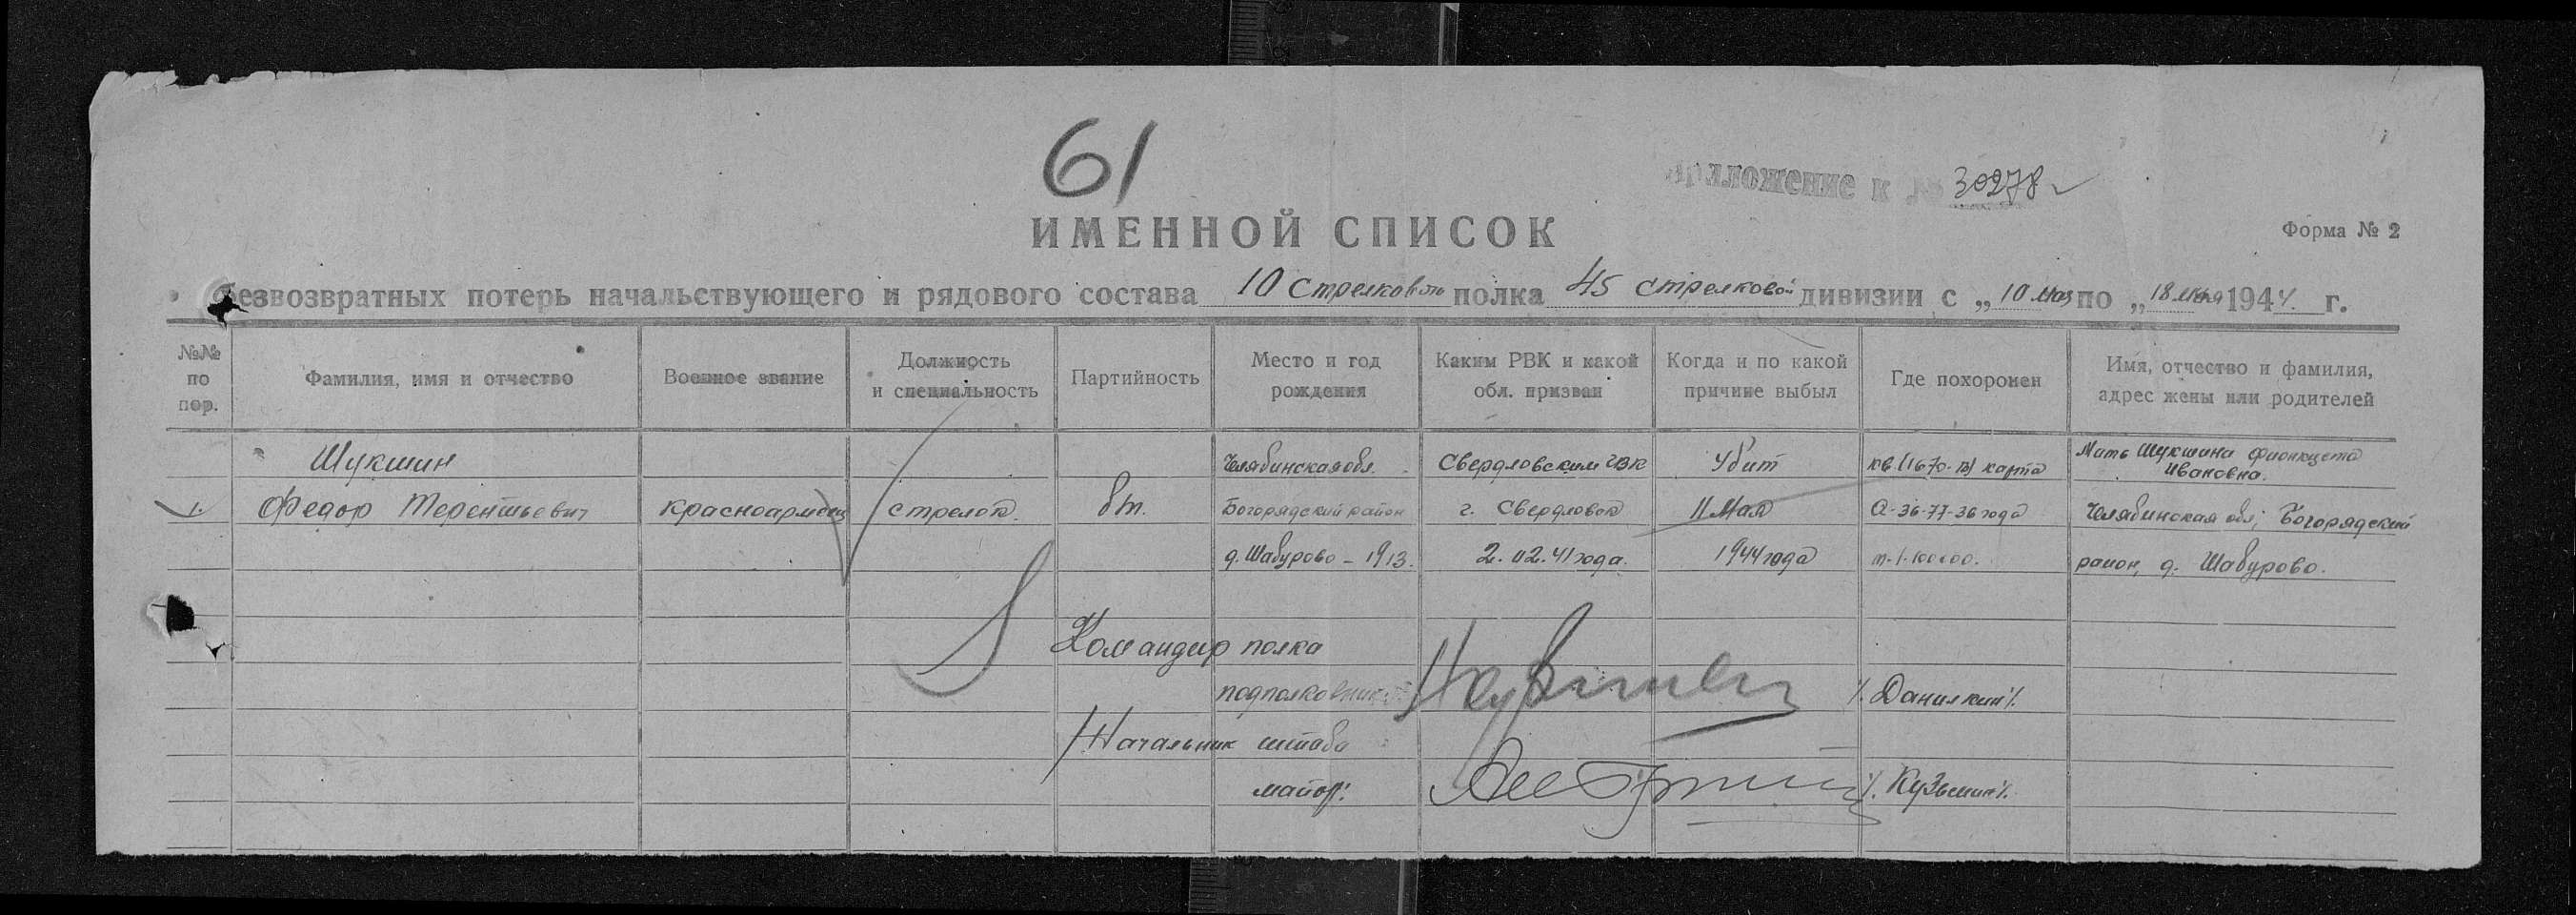 61
приложение к № 30278
ИМЕННОЙ СПИСОК
Форма № 2
безвозвратных потерь начальствующего и рядового состава 10 стрелков полка 45 стрелковой дивизии с „10 мая по „18 мая 1944 г.
№№ по пор.
Фамилия, имя и отчество
Военное звание
Должность и специальность
Партийность
Место и год рождения
Каким РВК и какой обл. призван
Когда и по какой причине выбыл
Где похоронен
Имя, отчество и фамилия, адрес жены или родителей
1.
Шукшин
Федор Терентьевич
красноармеец
стрелок
бп.
Челябинская обл.
Богорядский район
д. Шабурово - 1913.
Свердловским ГВК
г. Свердловск
2.02.41 года.
Убит
11 мая
1944 года
кв. (1670-В) карта
О-36-77-36 года
м. 1.100000.
Мать Шукшина
Ивановна.
Челябинская обл, Богорядский
район, д. Шабурово.
Командир полка
подполковник /. Данилкин /.
Начальник штаба
майор: /. Кузьмин /.